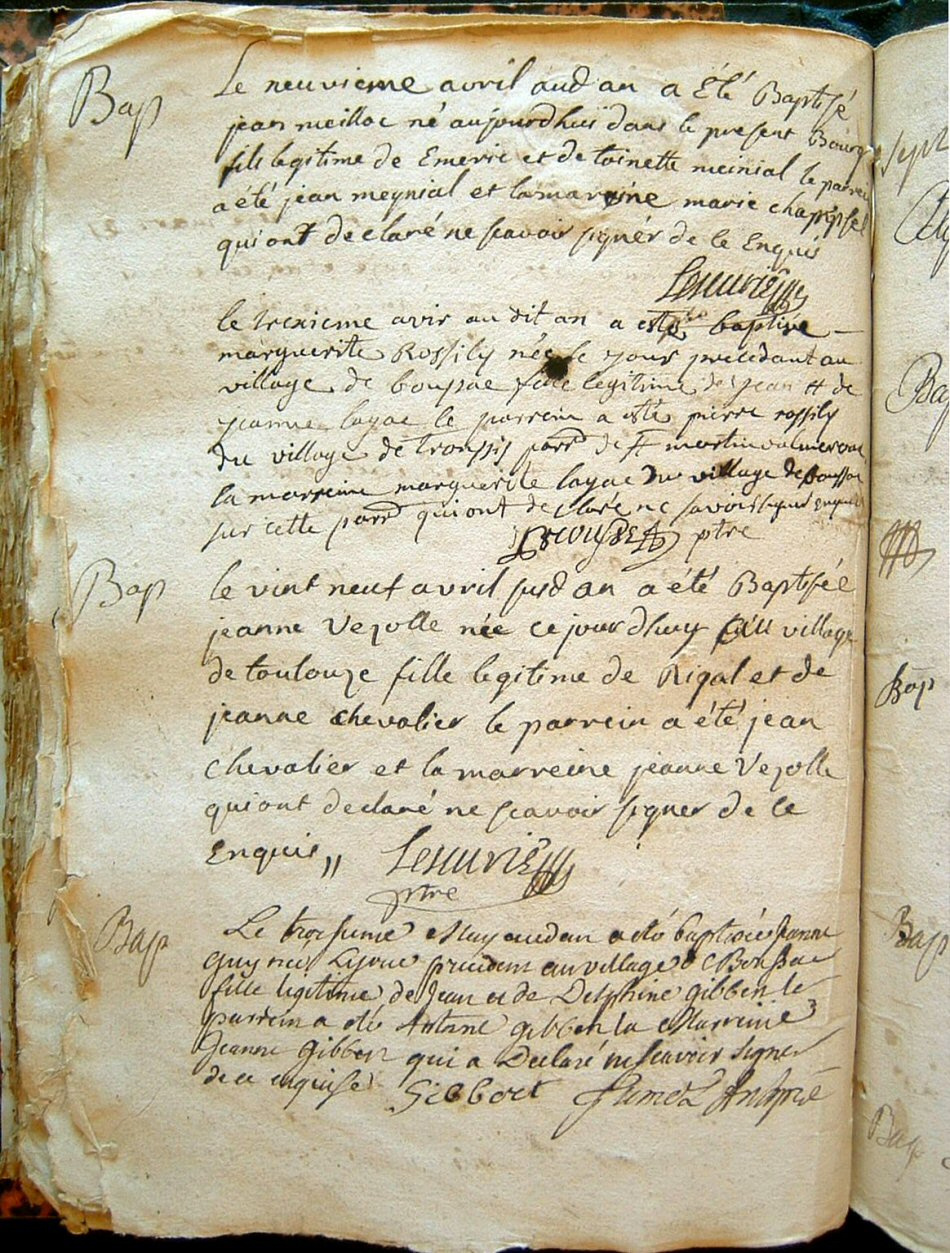 Bap
Le neuvieme avril aud an a été Baptisé
jean meillac né aujourdhui dans le present Bourg
fils legitime de Emeric et de toinette meinial le parrein
a été jean meynial et la mareine marie
qui ont declaré ne scavoir signér de ce Enquis
le trexieme avir au dit an a esté baptisée
marguerite Rossily née le jour precedant au
village de boussac fille legitime de jean et de
jeanne layac le parrein a esté pierre rossily
du village de paroisse de St martin valmeroux
la marreine marguerite layac du village de boussac
sur cette parr qui ont declaré ne savoir signer enquis
ptre
Bap
le vint neuf avril susd an a été Baptisée
jeanne Vezolle née ce jourdhuy au village
de toulouze fille legitime de Rigal et de
jeanne chevalier le parrein a été jean
chevalier et la marreine jeanne Vezolle
qui ont declaré ne scavoir signer de ce
Enquis
ptre
Bap
Le troisieme May audan a eté baptisée Jeanne
Guy nee Le jour precident au village de Boussac
fille legitime de Jean et de Delphine gibbert le
parrein a eté Antoine gibbert la Marreine
Jeanne Gibbert qui a Declaré ne scavoir signer
de ce enquise
Gibbert
Bap
Bap
Bap
Bap